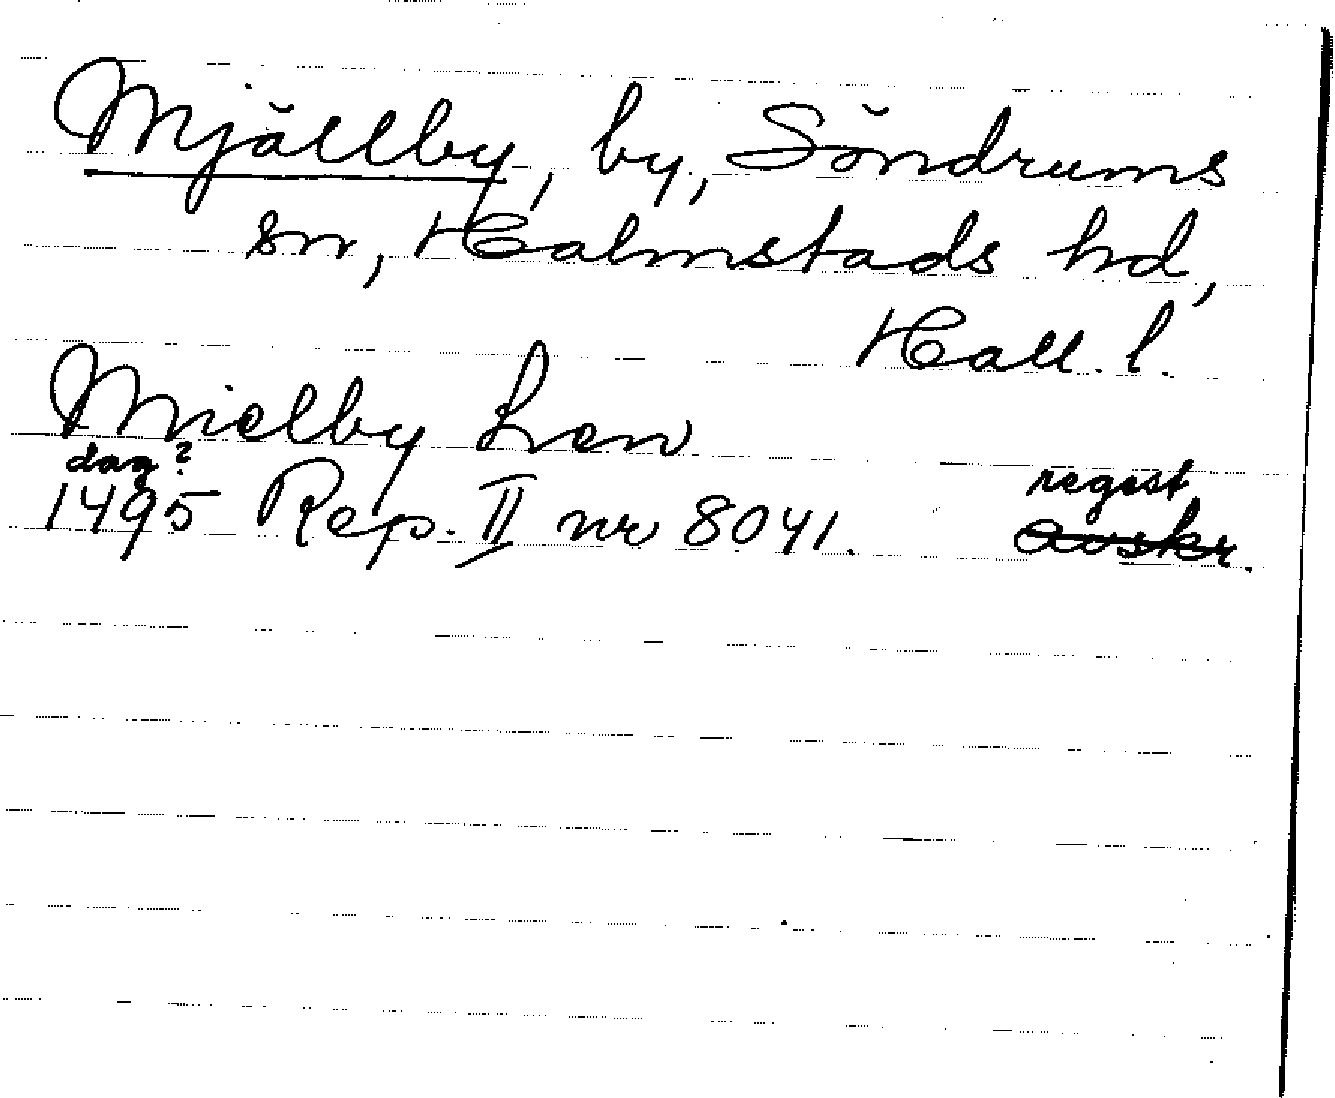 Mjällby, by, Söndrums
sn, Halmstads hd,
Hall. l.
Mielby Len
dag?
1495 Rep. II nr 8041. regest
avskr.